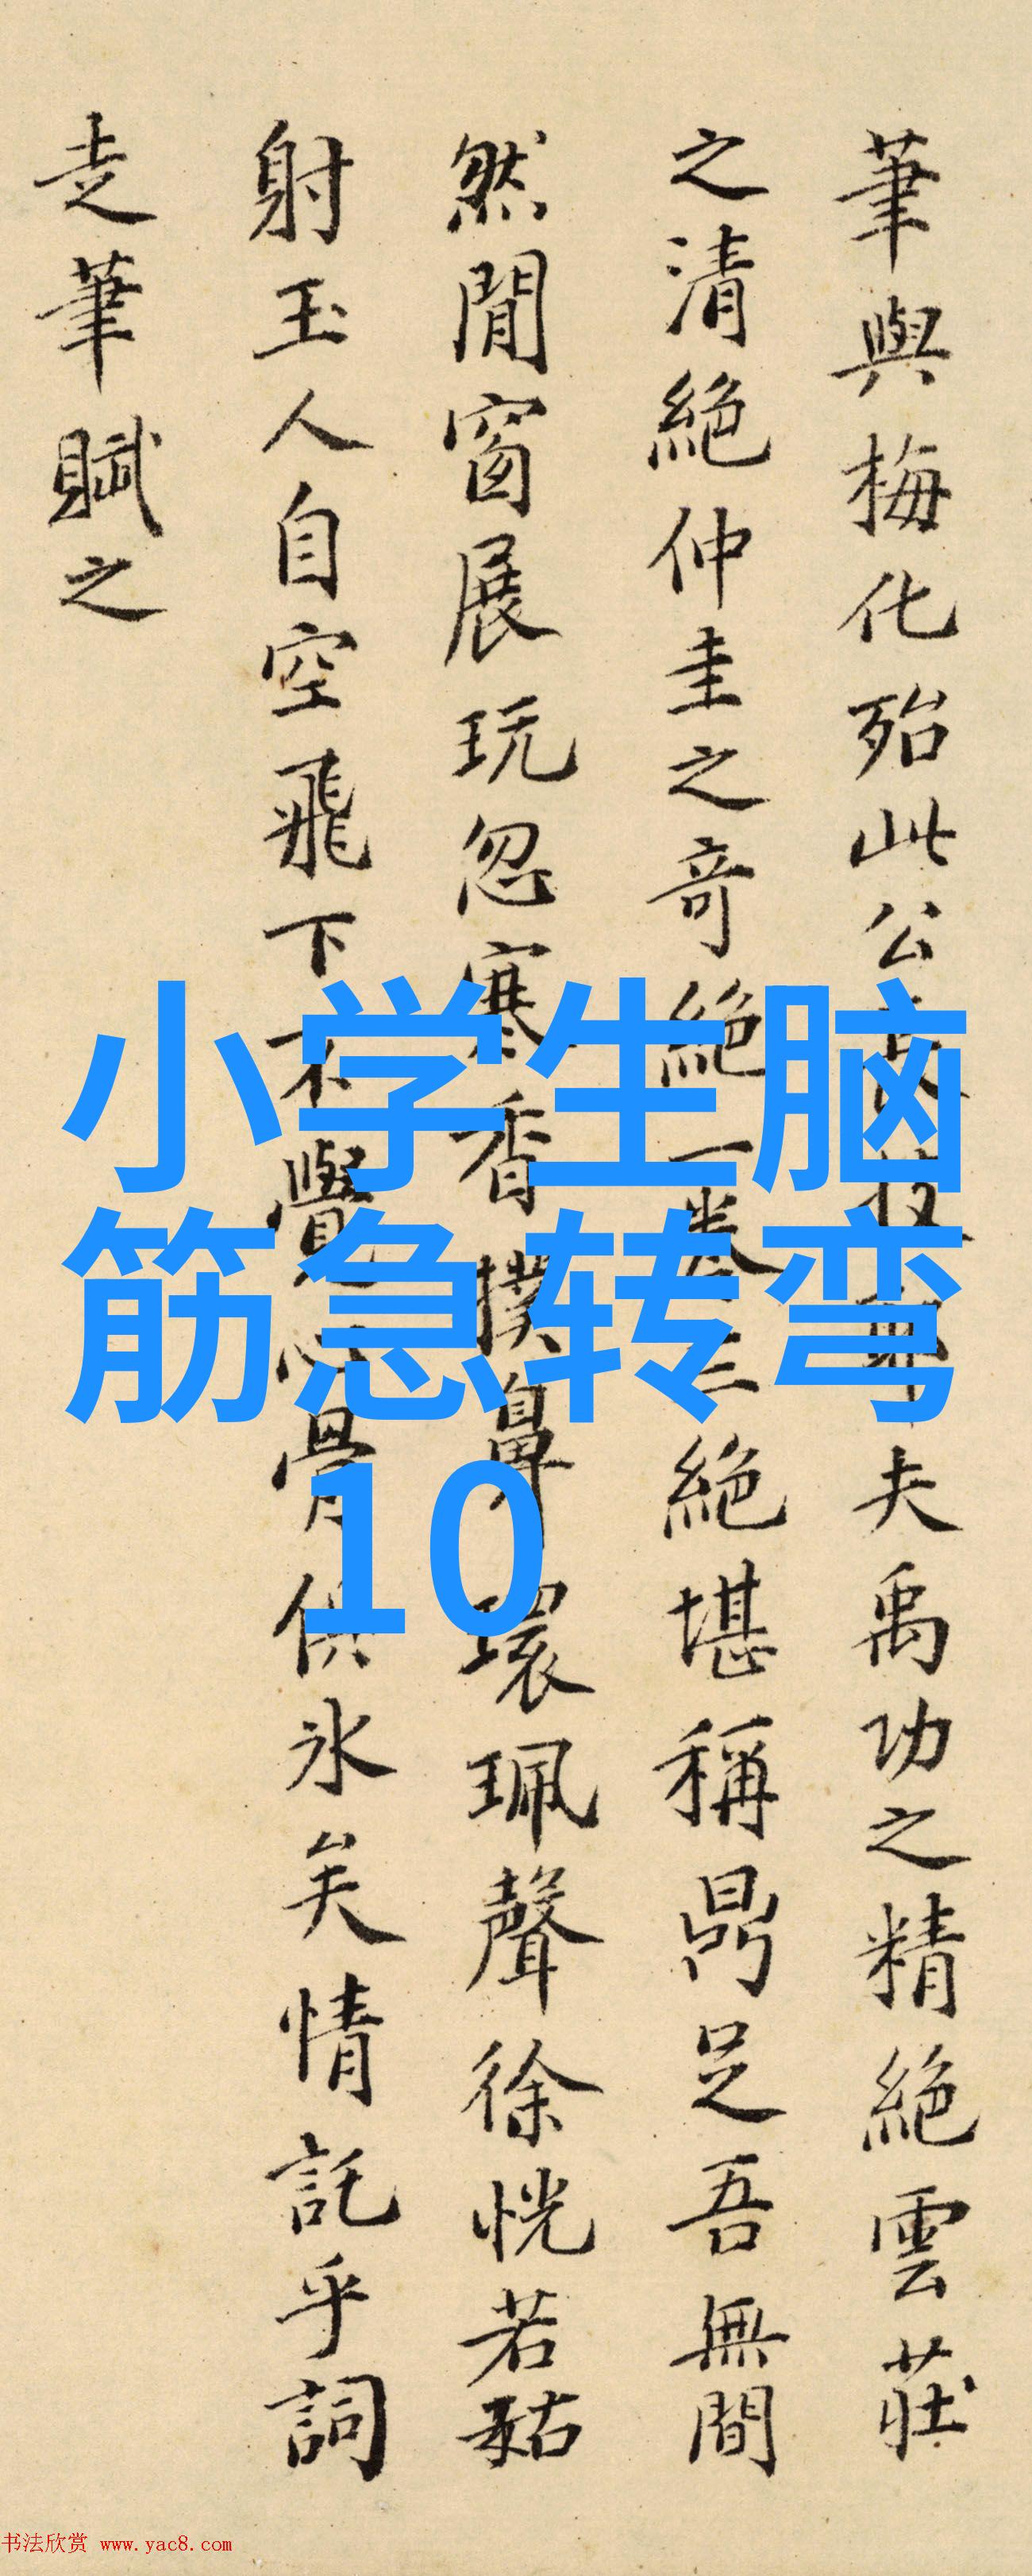 筆與梅化殆此公夫禹功之精絕雲莊
之清絕仲圭之奇絕一卷三絕堪稱鼎足吾無間
然閒窗展玩忽寒香撲鼻環珮聲徐恍若
射玉人自空飛下不覺心骨俱冰矣情託乎詞
走筆賦之
小学生脑
筋急转弯
10
书法欣赏 www.yac8.com